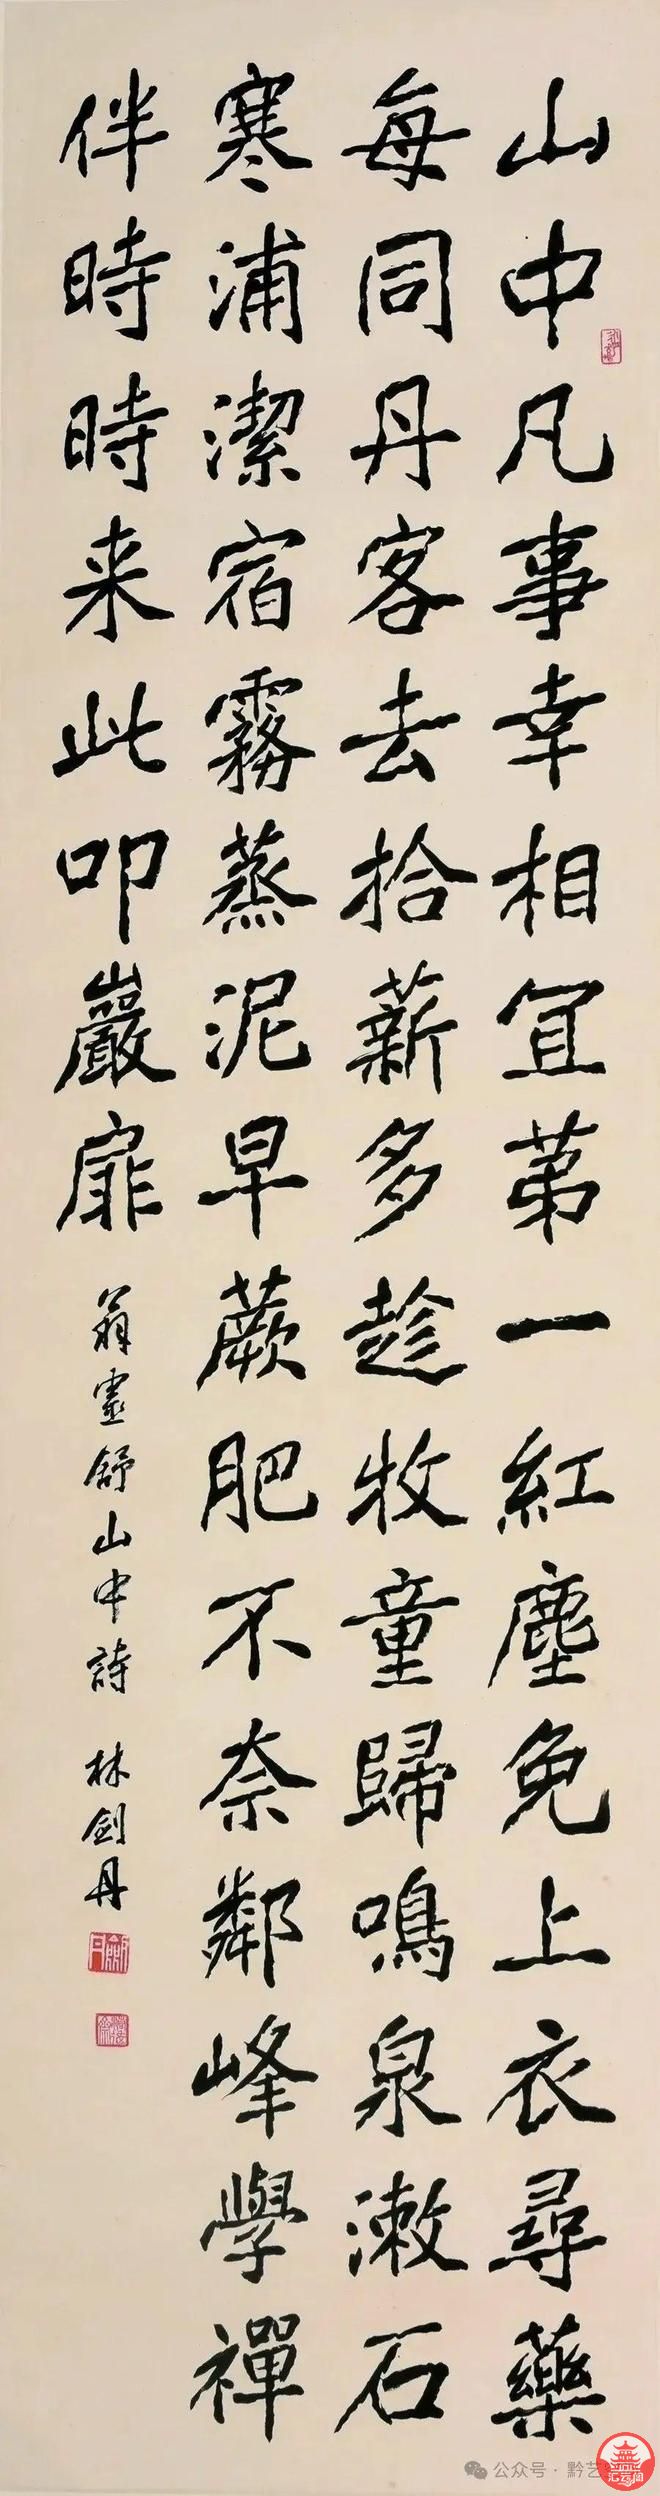 山中凡事幸相宜第一紅塵免上衣尋藥
每同丹客去拾薪多趁牧童歸鳴泉漱石
寒浦潔宿霧蒸泥早蕨肥不奈鄰峰學禪
伴時時来此叩巖扉
翁靈舒山中詩 林劍丹
公众号·黔艺
汇云阁